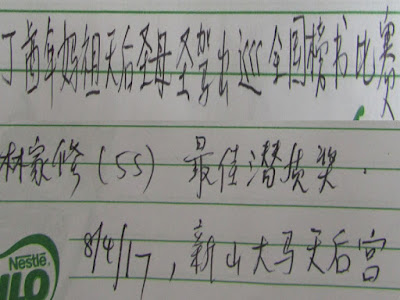 丁酉年妈祖天后圣母圣驾出巡全国榜书比赛
林家修(SS) 最佳潜质奖.
8/4/17, 新山大马天后宫
Nestlé